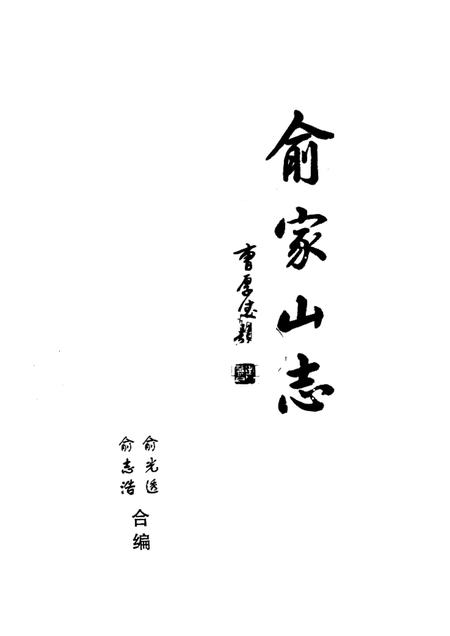 俞家山志
曹厚德题
俞光透
俞志浩
合编